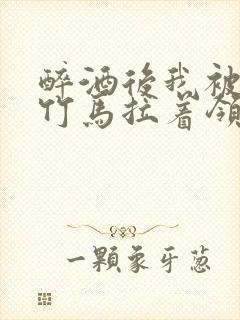 醉酒後我被
竹馬拉着領
一顆象牙蔥